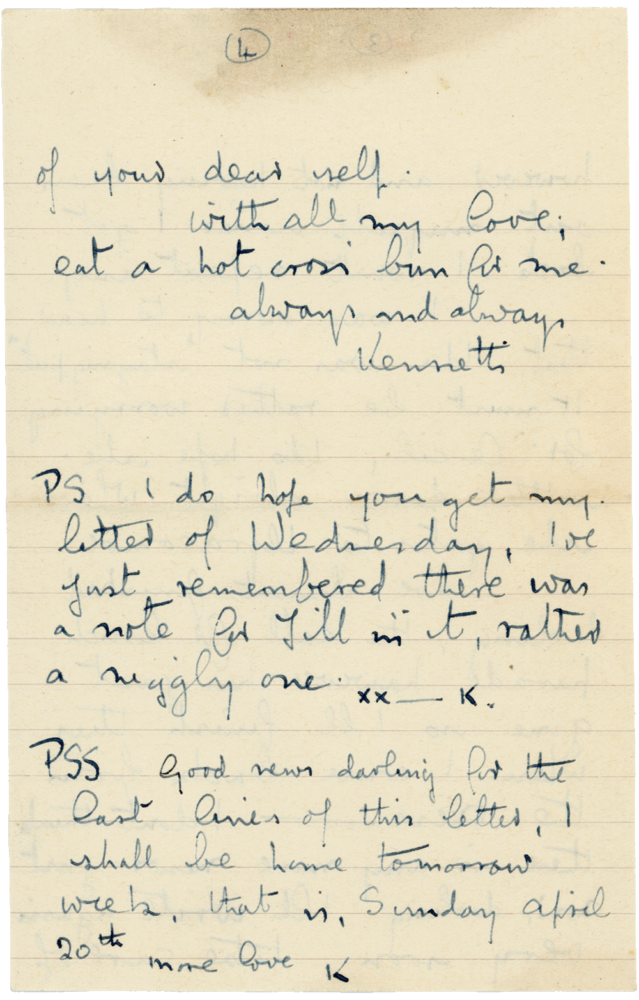 4
of your dear self.
with all my love;
eat a hot cross bun for me.
always and always
Kenneth
PS I do hope you get my
letter of Wednesday, I've
just remembered there was
a note for Jill in it, rather
a niggly one. xx — K.
PSS Good news darling for the
last lines of this letter, I
shall be home tomorrow
week, that is, Sunday April
20th more love K